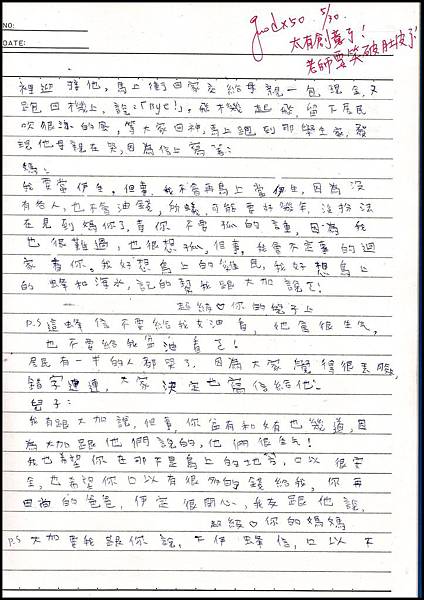 NO:
DATE:
good x50 5/30.
太有創意了!
老師要笑破肚皮了
裡迎接他,馬上衝回家交給母親一包現金,又
跑回機上,說:「Bye!」。飛機起飛,留下居民
吹很涼的風,等大家回神,馬上跑到那學生家,發
現他母親在哭,因為信上寫著:
媽:
我要當伊生。但事,我不會再馬上當伊生,因為沒
有告人,也不會油錢,所蟻可能要好幾年沒拚法
在見到媽你了,青你不要孤的重,因為我
也很難過,也很想孤,但事,我會不定事的迴
家看你。我好想島上的難民,我好想島上
的蜂和海水,記的幫我跟大加說ㄛ!
超級♡你的兒子上
P.S 這蜂信不要給我女油看,他會很生气,
也不要給我魚油看ㄛ!
居民有一半的人都哭了,因為大家覺得很丟臉,
錯字連連,大家決定也寫信給他:
兒子:
我有跟大加說,但事,你宙有和女有也幾道,因
為大加跟他們說的,他們很生气!
我也希望你在那不是島上的地方,口以很安
全,也希望你口以有很多的錢給我,你再
田尚的爸爸,伊定很開心,我友跟他說,
超級♡你的媽媽
P.S 大加要我跟你說,下伊蜂信,口以不